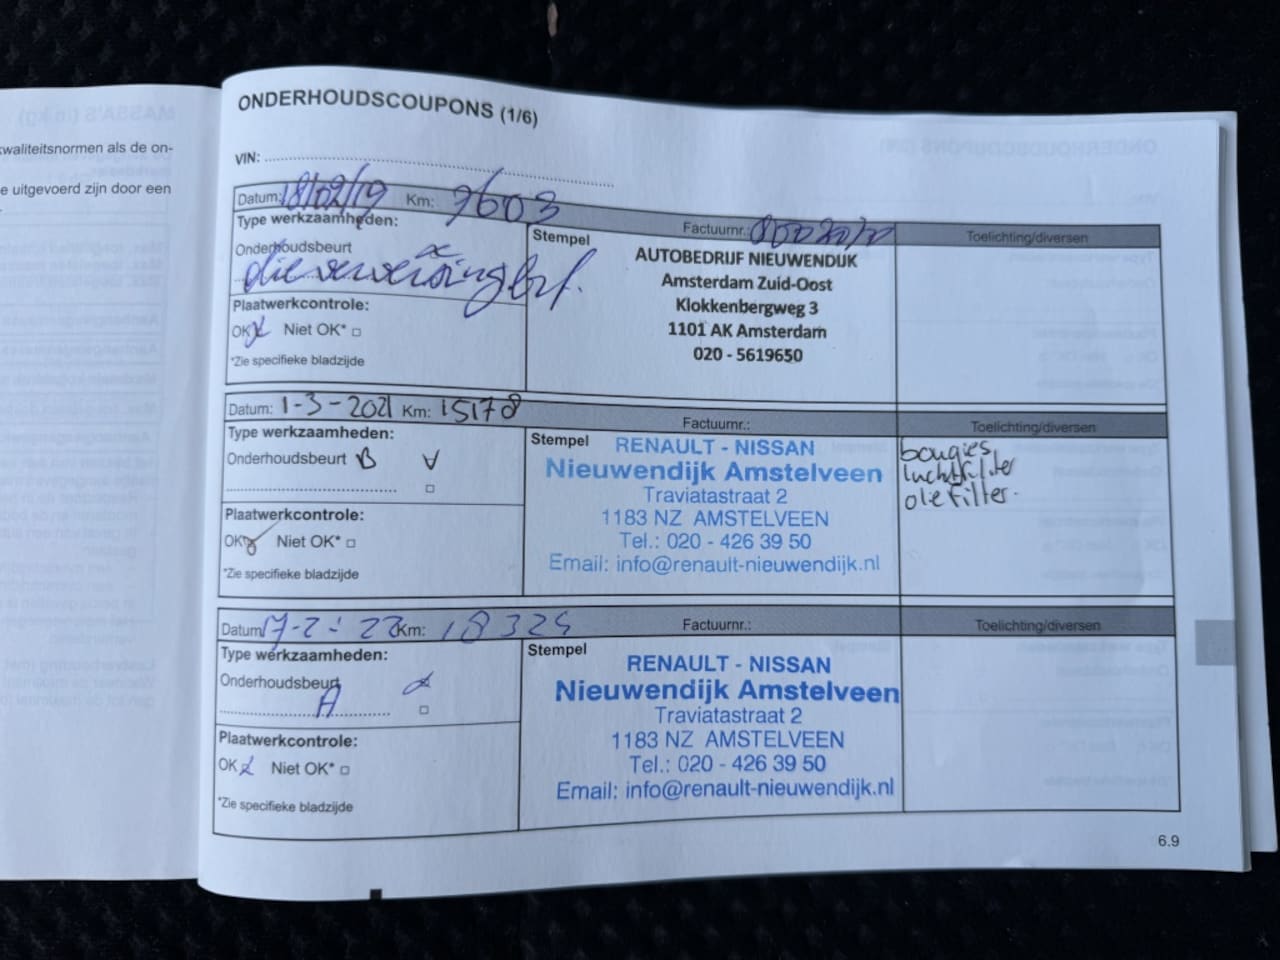 kwaliteitsnormen als de on-
e uitgevoerd zijn door een
ONDERHOUDSCOUPONS (1/6)
VIN:
Datum: 18/02/19 Km: 7603
Type werkzaamheden:
Factuurnr.:
Toelichting/diversen
Onderhoudsbeurt
olieverversing brt.
Stempel
AUTOBEDRIJF NIEUWENDIJK
Amsterdam Zuid-Oost
Klokkenbergweg 3
1101 AK Amsterdam
020 - 5619650
Plaatwerkcontrole:
OK Niet OK*
*Zie specifieke bladzijde
Datum: 1-3-2021 Km: 15178
Factuurnr.:
Toelichting/diversen
Type werkzaamheden:
Onderhoudsbeurt B
Stempel
RENAULT - NISSAN
Nieuwendijk Amstelveen
Traviatastraat 2
1183 NZ AMSTELVEEN
Tel.: 020 - 426 39 50
Email: info@renault-nieuwendijk.nl
bougies
luchtfilter
oliefilter.
Plaatwerkcontrole:
OK Niet OK*
*Zie specifieke bladzijde
Datum 17-2-22 Km: 18325
Factuurnr.:
Toelichting/diversen
Type werkzaamheden:
Onderhoudsbeurt
A
Stempel
RENAULT - NISSAN
Nieuwendijk Amstelveen
Traviatastraat 2
1183 NZ AMSTELVEEN
Tel.: 020 - 426 39 50
Email: info@renault-nieuwendijk.nl
Plaatwerkcontrole:
OK Niet OK*
*Zie specifieke bladzijde
6.9